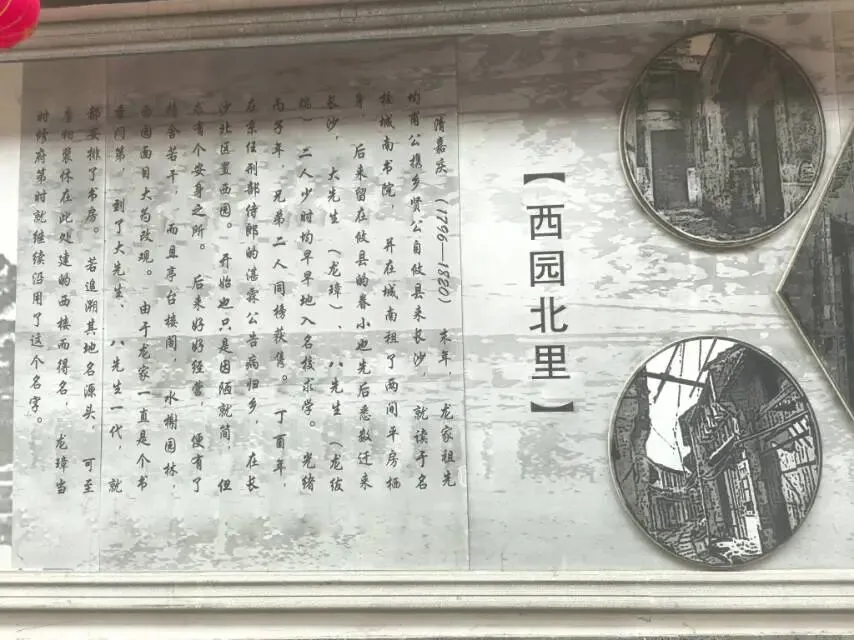 【西园北里】
清嘉庆（1796-1820）末年，龙家祖先
均甫公携乡贤公自攸县来长沙，就读于名
校城南书院，并在城南租了两间平房栖
身，后来留在攸县的眷小也先后悉数迁来
长沙，大先生（龙璋）、八先生（龙绂
瑞）二人少时均早早地入名校求学。光绪
丙子年，兄弟二人同榜获售。丁酉年，
在京任刑部侍郎的湛霖公告病归乡，在长
沙北区置西园。开始也只是因陋就简，但
求有个安身之所。后来好好经营，便有了
精舍若干，而且亭台楼阁，水榭园林，
西园面目大为改观。由于龙家一直是个书
香门第，到了大先生、八先生一代，就
都安排了书房。若追溯其地名源头，可至
唐相裴休在此处建的西楼而得名，龙璋当
时修府第时就继续沿用了这个名字。